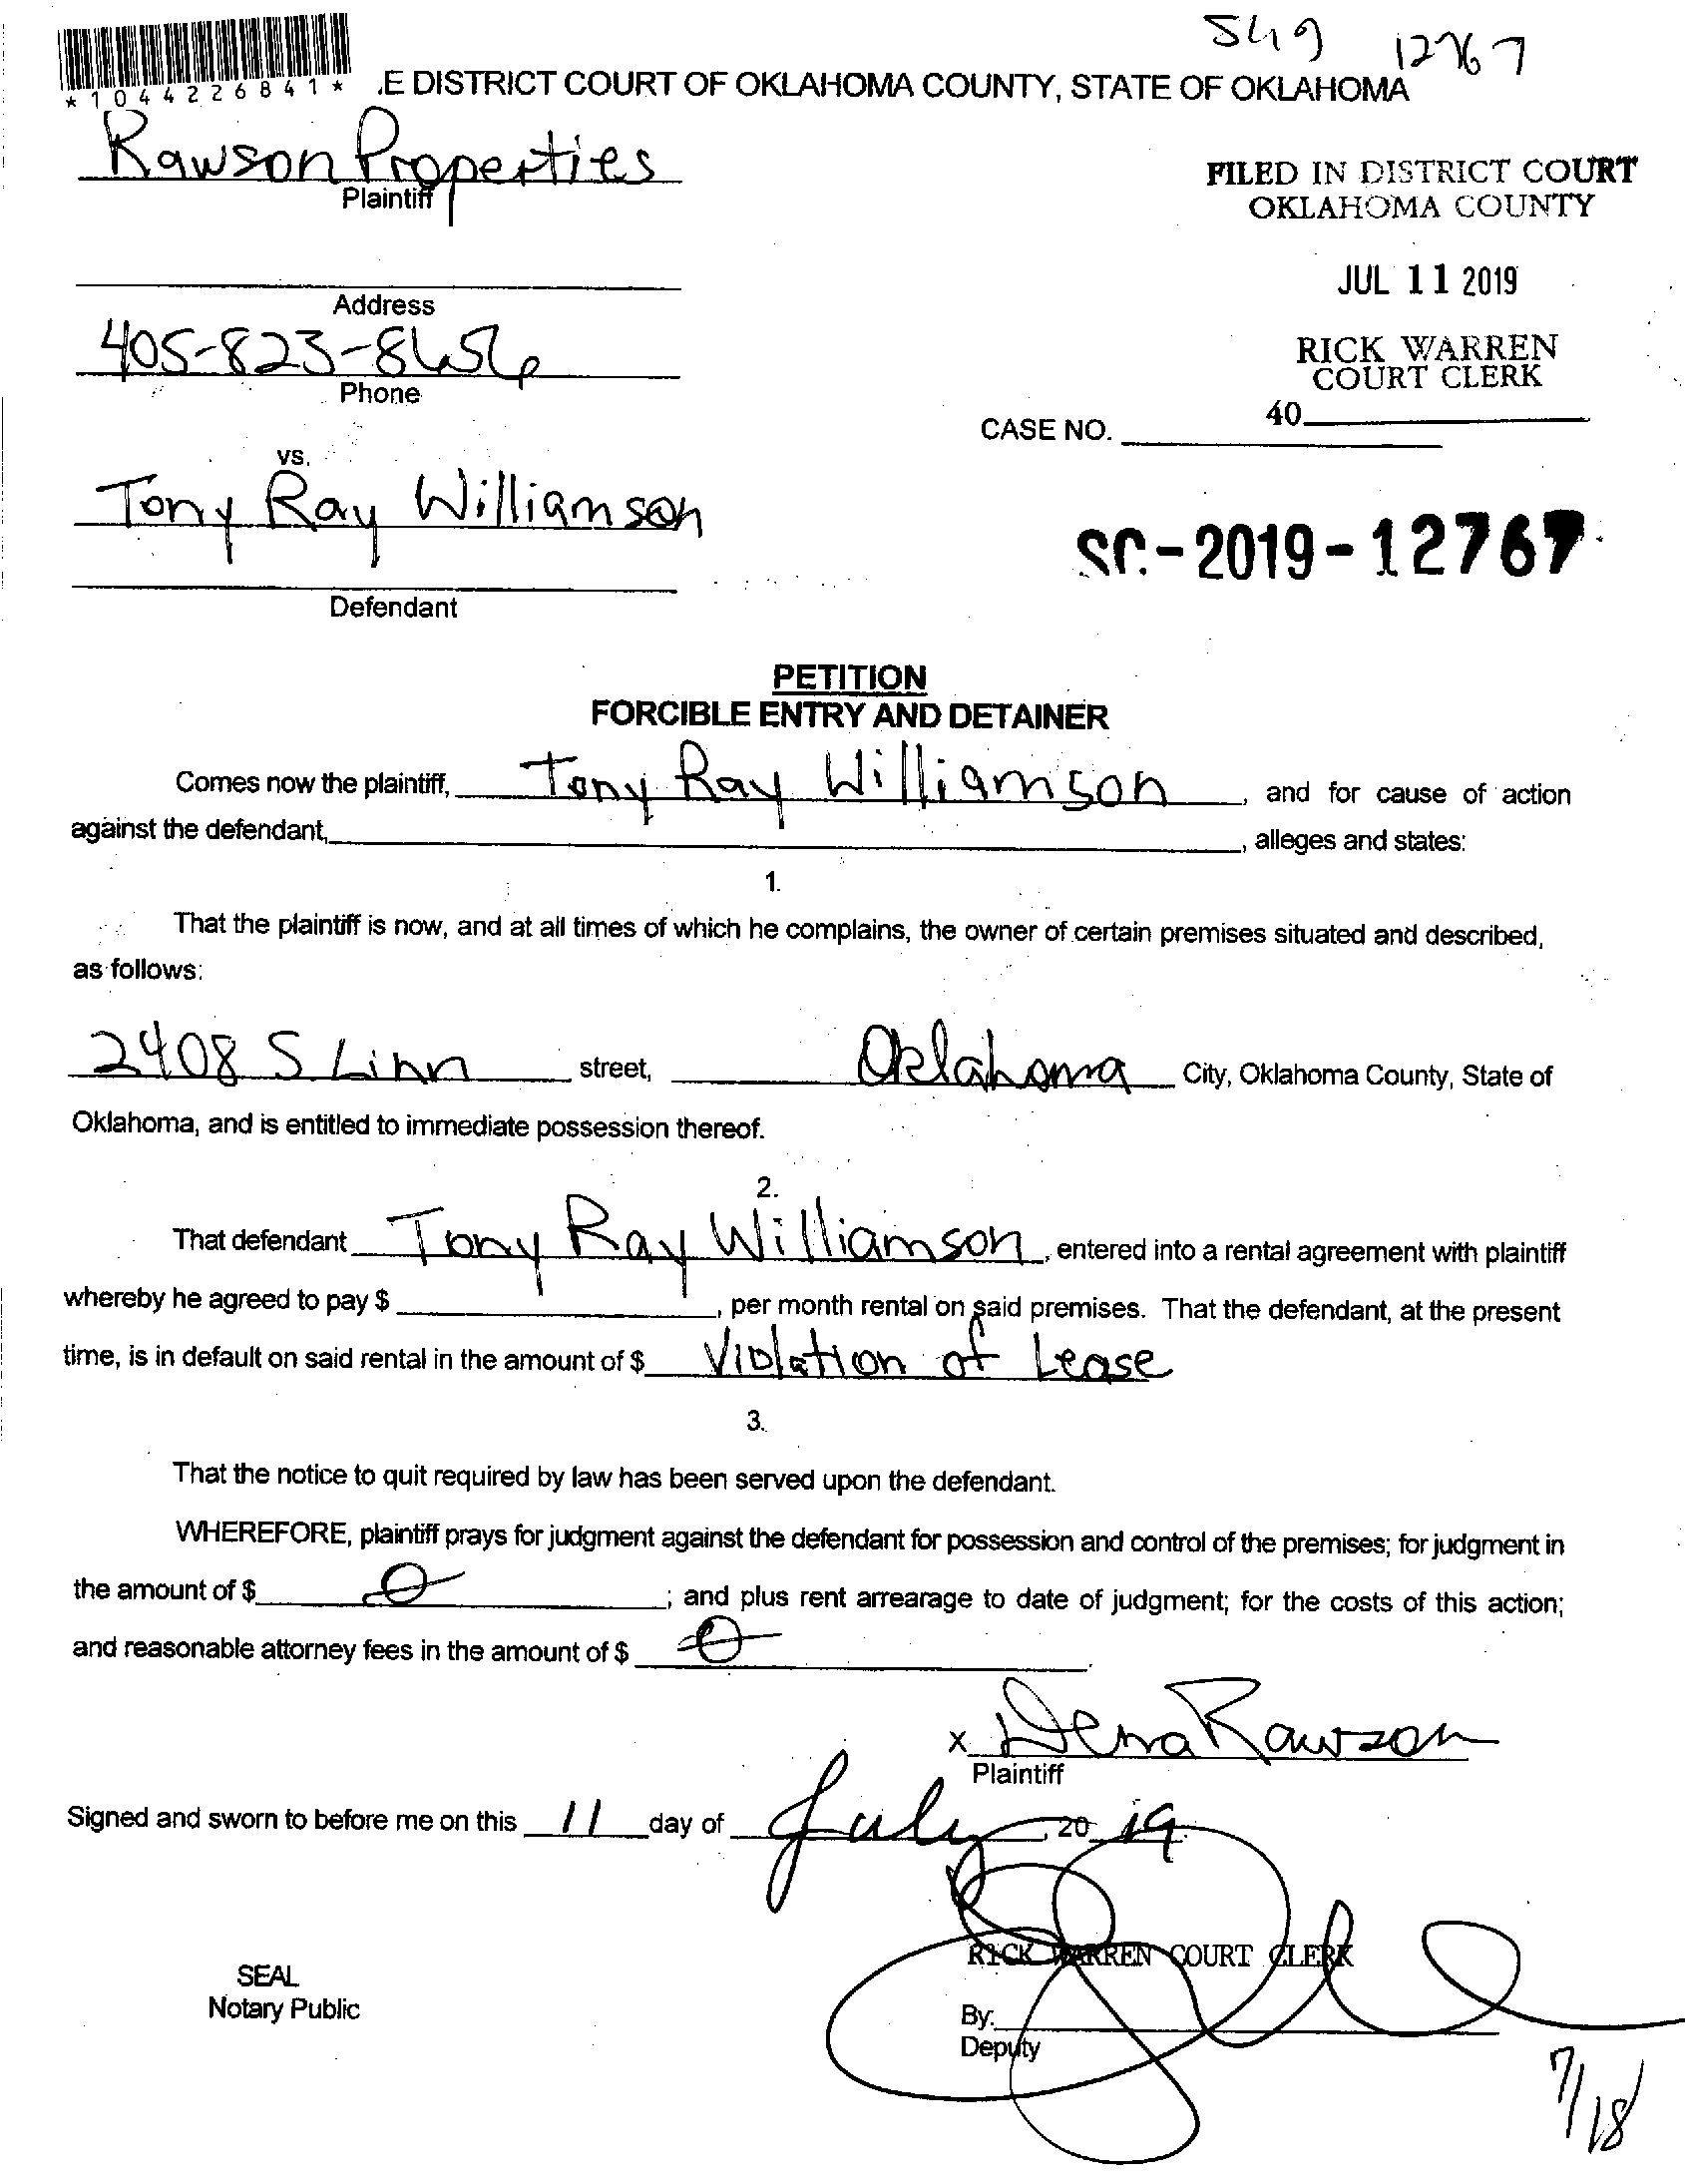 549 12767
*1044226841*
.E DISTRICT COURT OF OKLAHOMA COUNTY, STATE OF OKLAHOMA
Rawson Properties
Plaintiff
FILED IN DISTRICT COURT
OKLAHOMA COUNTY
JUL 11 2019
Address
405-823-8656
Phone
RICK WARREN
COURT CLERK
40
CASE NO.
vs.
Tony Ray Williamson
SC-2019-12767
Defendant
PETITION
FORCIBLE ENTRY AND DETAINER
Comes now the plaintiff, Tony Ray Williamson, and for cause of action
against the defendant, , alleges and states:
1.
That the plaintiff is now, and at all times of which he complains, the owner of certain premises situated and described,
as follows:
2408 S Linn street, Oklahoma City, Oklahoma County, State of
Oklahoma, and is entitled to immediate possession thereof.
2.
That defendant Tony Ray Williamson, entered into a rental agreement with plaintiff
whereby he agreed to pay $ , per month rental on said premises. That the defendant, at the present
time, is in default on said rental in the amount of $ Violation of Lease
3.
That the notice to quit required by law has been served upon the defendant.
WHEREFORE, plaintiff prays for judgment against the defendant for possession and control of the premises; for judgment in
the amount of $ 0 ; and plus rent arrearage to date of judgment; for the costs of this action;
and reasonable attorney fees in the amount of $ 0 .
x Dena Rawson
Plaintiff
Signed and sworn to before me on this 11 day of July, 20 19.
RICK WARREN COURT CLERK
SEAL
Notary Public
By:
Deputy
7/18